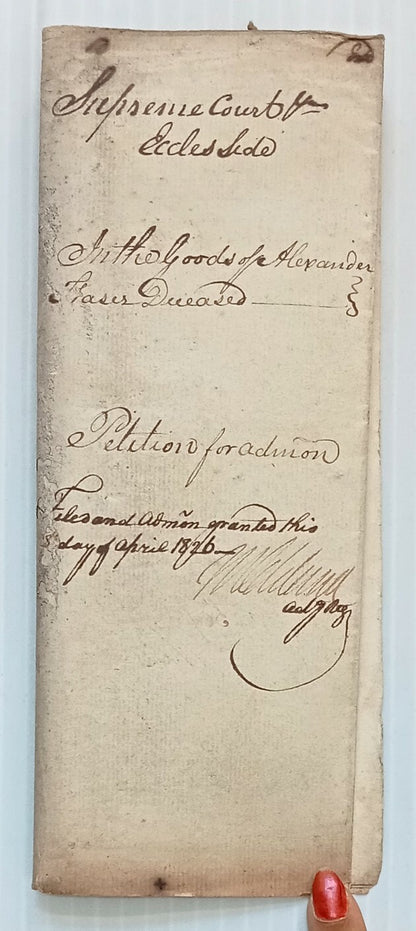 Supreme Court
Eccles Side
In the Goods of Alexander
Fraser Deceased
Petition for admõn
Filed and Admõn granted this
day of April 1826